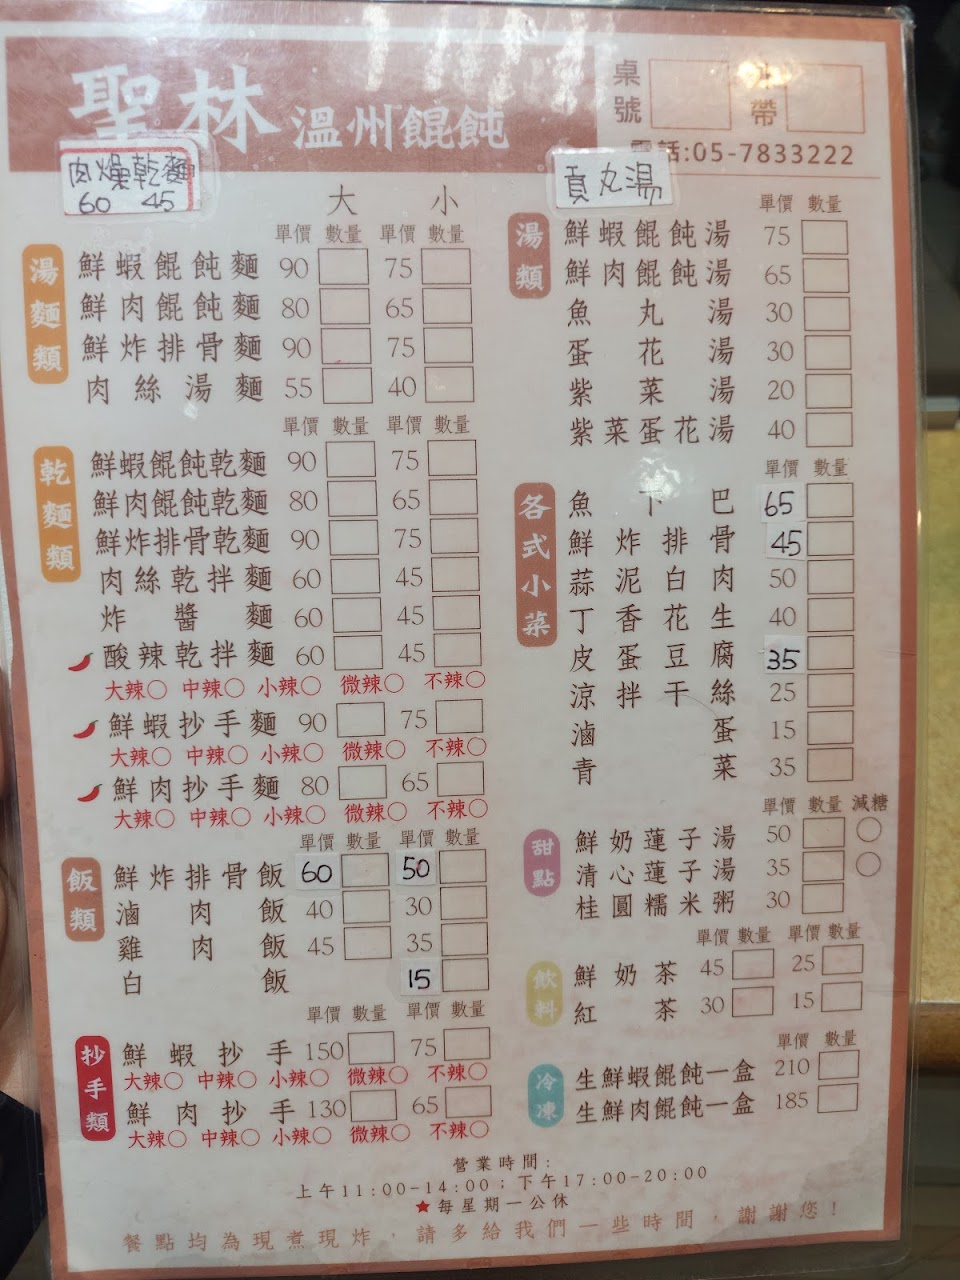 聖林 溫州餛飩
桌號
帶
電話:05-7833222
肉燥乾麵
60 45
大 小
單價 數量 單價 數量
湯麵類
鮮蝦餛飩麵 90 75
鮮肉餛飩麵 80 65
鮮炸排骨麵 90 75
肉絲湯麵 55 40
單價 數量 單價 數量
乾麵類
鮮蝦餛飩乾麵 90 75
鮮肉餛飩乾麵 80 65
鮮炸排骨乾麵 90 75
肉絲乾拌麵 60 45
炸醬麵 60 45
酸辣乾拌麵 60 45
大辣○ 中辣○ 小辣○ 微辣○ 不辣○
鮮蝦抄手麵 90 75
大辣○ 中辣○ 小辣○ 微辣○ 不辣○
鮮肉抄手麵 80 65
大辣○ 中辣○ 小辣○ 微辣○ 不辣○
單價 數量 單價 數量
飯類
鮮炸排骨飯 60 50
滷肉飯 40 30
雞肉飯 45 35
白飯 15
單價 數量 單價 數量
抄手類
鮮蝦抄手 150 75
大辣○ 中辣○ 小辣○ 微辣○ 不辣○
鮮肉抄手 130 65
大辣○ 中辣○ 小辣○ 微辣○ 不辣○
貢丸湯
單價 數量
湯類
鮮蝦餛飩湯 75
鮮肉餛飩湯 65
魚丸湯 30
蛋花湯 30
紫菜湯 20
紫菜蛋花湯 40
單價 數量
各式小菜
魚下巴 65
鮮炸排骨 45
蒜泥白肉 50
丁香花生 40
皮蛋豆腐 35
涼拌干絲 25
滷蛋 15
青菜 35
單價 數量 減糖
甜點
鮮奶蓮子湯 50 ○
清心蓮子湯 35 ○
桂圓糯米粥 30
單價 數量 單價 數量
飲料
鮮奶茶 45 25
紅茶 30 15
單價 數量
冷凍
生鮮蝦餛飩一盒 210
生鮮肉餛飩一盒 185
營業時間:
上午11:00-14:00;下午17:00-20:00
★每星期一公休
餐點均為現煮現炸,請多給我們一些時間,謝謝您!